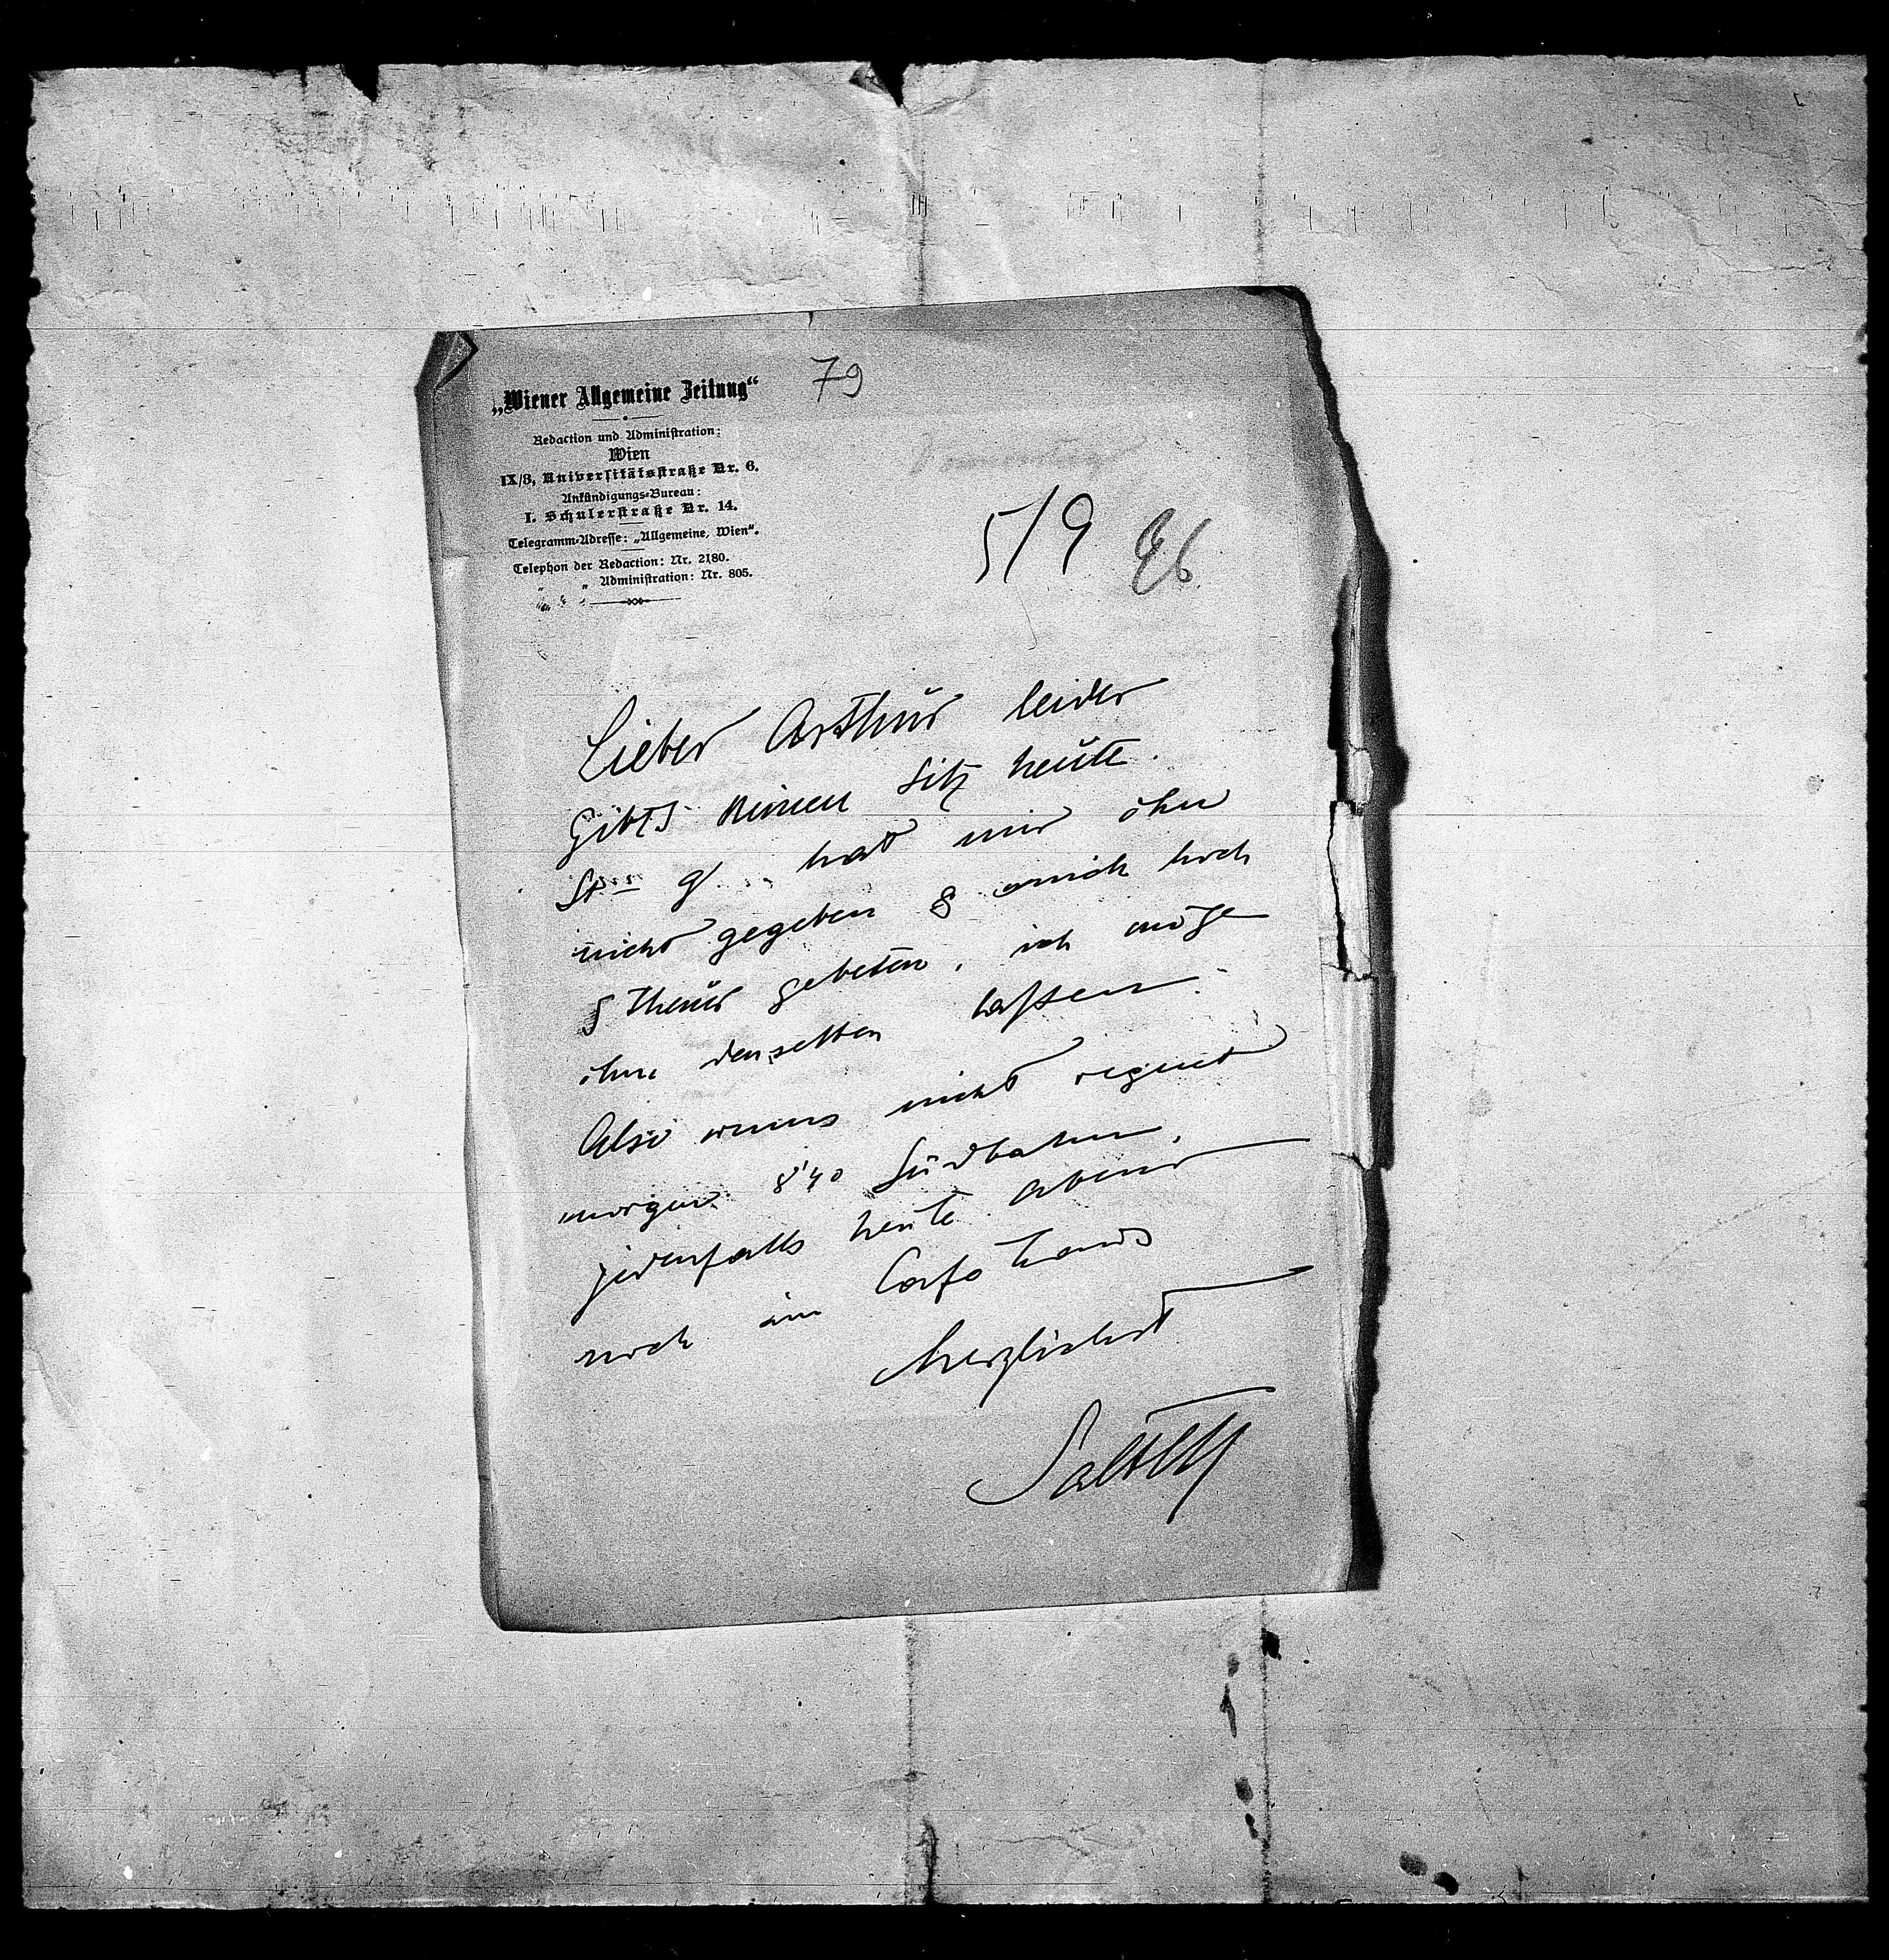 „Wiener Allgemeine Zeitung“
79
Redaction und Administration:
Wien
IX/3, Universitätsstraße Nr. 6.
Ankündigungs-Bureau:
I. Schulerstraße Nr. 14.
Telegramm-Adresse: „Allgemeine, Wien“.
Telephon der Redaction: Nr. 2180.
„ „ Administration: Nr. 805.
5/9 96
Lieber Arthur leider
gibts keinen Sitz heute.
hat mir ihn
nicht gegeben & mich hoch
& theuer gebeten, ich möge
ihm denselben lassen.
Also wenns nicht regnet
morgen 8'40 Südbahn,
jedenfalls heute abend
noch im Caféhaus
herzlichst
Salten